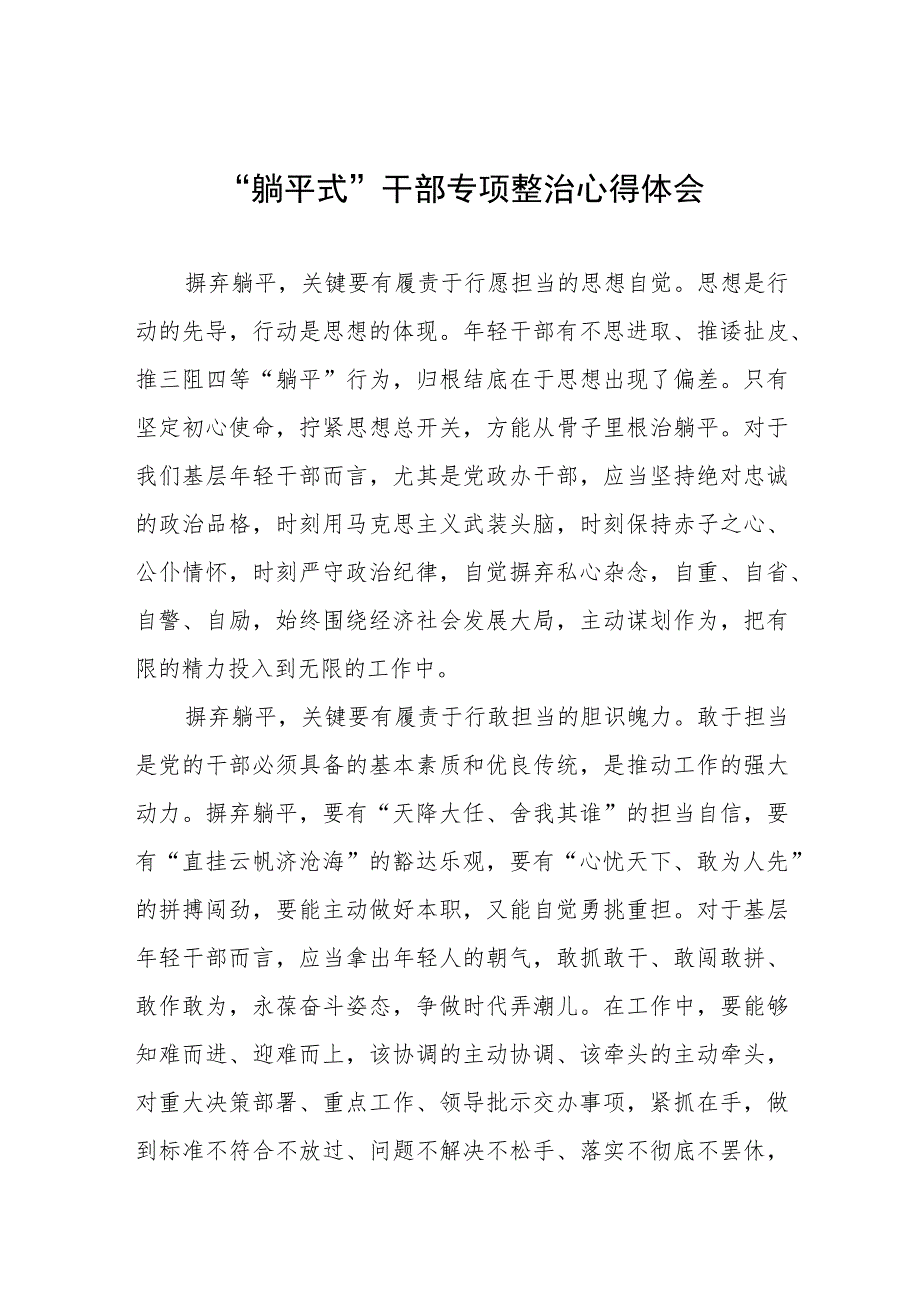 “躺平式”干部专项整治心得体会
摒弃躺平，关键要有履责于行愿担当的思想自觉。思想是行
动的先导，行动是思想的体现。年轻干部有不思进取、推诿扯皮、
推三阻四等“躺平”行为，归根结底在于思想出现了偏差。只有
坚定初心使命，拧紧思想总开关，方能从骨子里根治躺平。对于
我们基层年轻干部而言，尤其是党政办干部，应当坚持绝对忠诚
的政治品格，时刻用马克思主义武装头脑，时刻保持赤子之心、
公仆情怀，时刻严守政治纪律，自觉摒弃私心杂念，自重、自省、
自警、自励，始终围绕经济社会发展大局，主动谋划作为，把有
限的精力投入到无限的工作中。
摒弃躺平，关键要有履责于行敢担当的胆识魄力。敢于担当
是党的干部必须具备的基本素质和优良传统，是推动工作的强大
动力。摒弃躺平，要有“天降大任、舍我其谁”的担当自信，要
有“直挂云帆济沧海”的豁达乐观，要有“心忧天下、敢为人先”
的拼搏闯劲，要能主动做好本职，又能自觉勇挑重担。对于基层
年轻干部而言，应当拿出年轻人的朝气，敢抓敢干、敢闯敢拼、
敢作敢为，永葆奋斗姿态，争做时代弄潮儿。在工作中，要能够
知难而进、迎难而上，该协调的主动协调、该牵头的主动牵头，
对重大决策部署、重点工作、领导批示交办事项，紧抓在手，做
到标准不符合不放过、问题不解决不松手、落实不彻底不罢休，